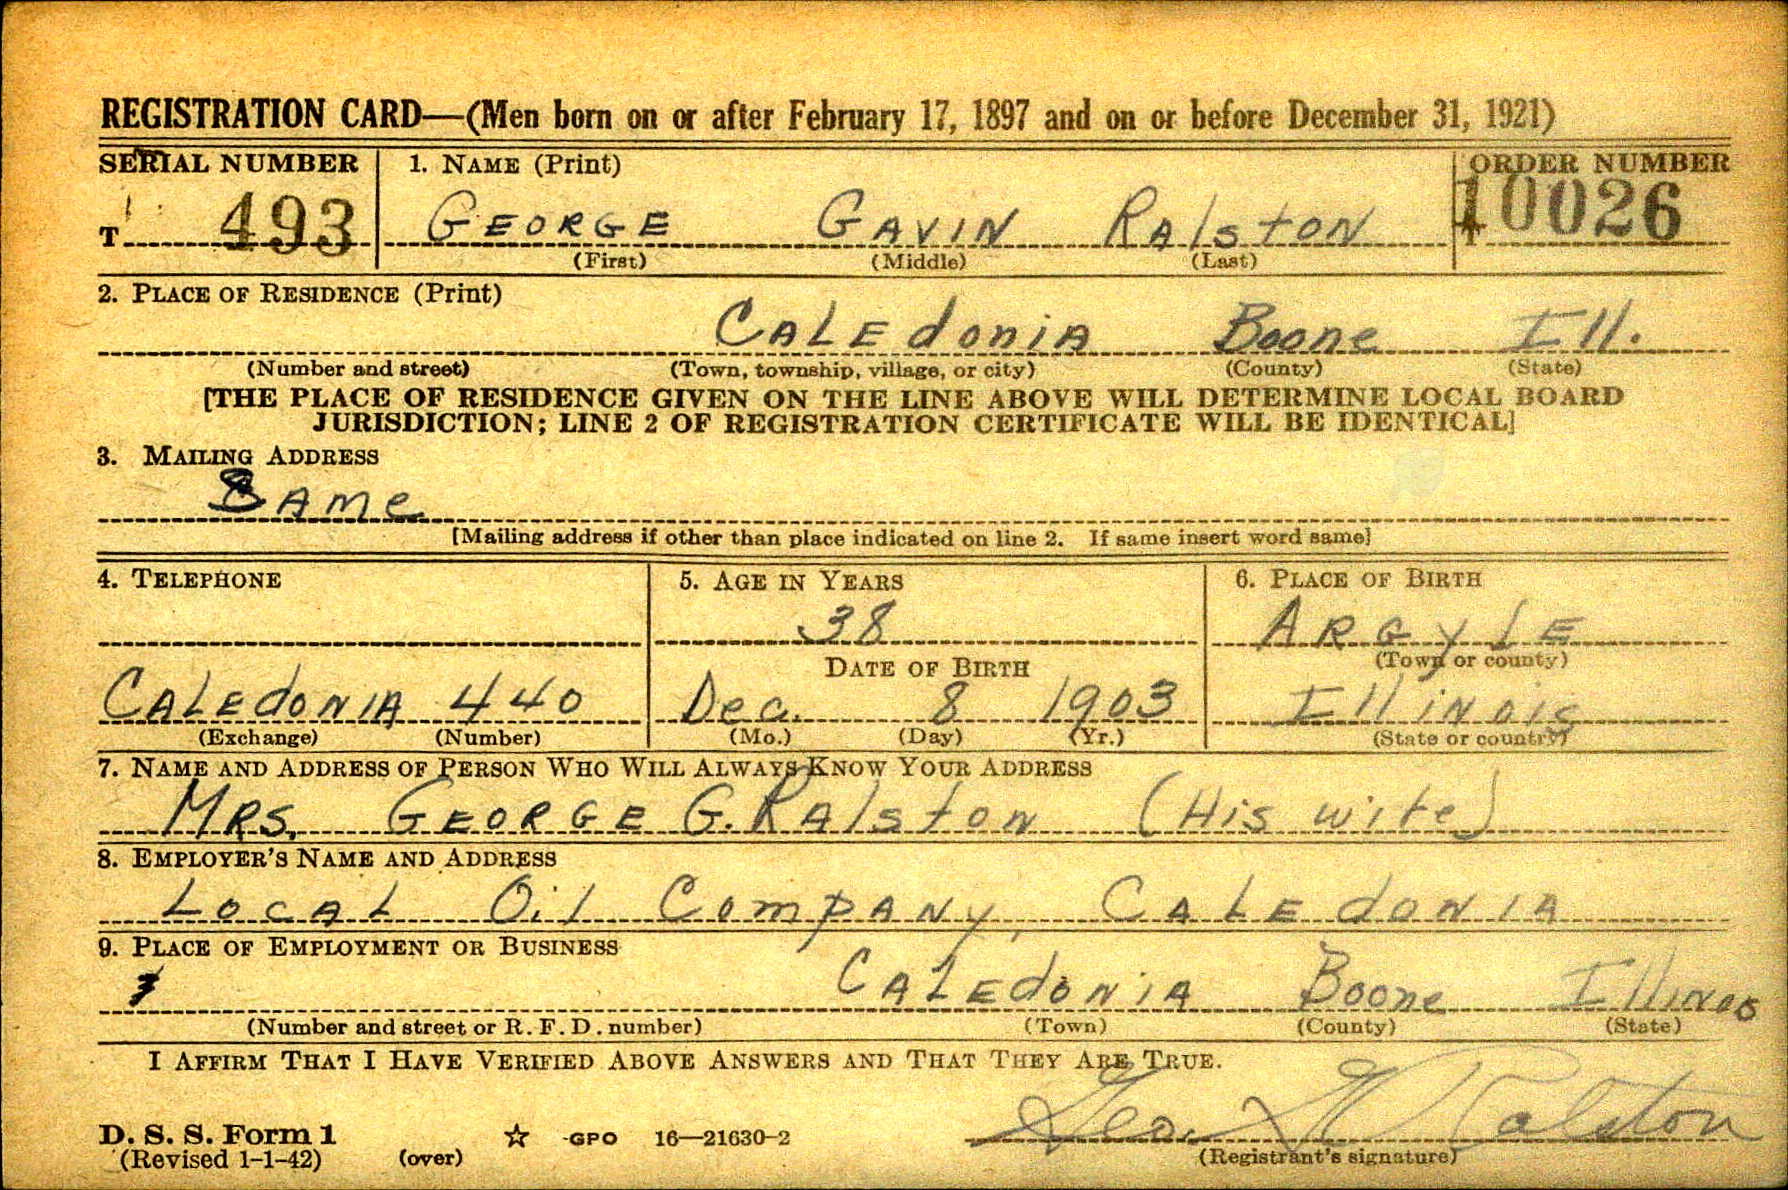 REGISTRATION CARD—(Men born on or after February 17, 1897 and on or before December 31, 1921)
SERIAL NUMBER 1. NAME (Print) ORDER NUMBER
T 493 GEORGE GAVIN RAlsTON 10026
(First) (Middle) (Last)
2. PLACE OF RESIDENCE (Print)
CALEdoniA Boone Ill.
(Number and street) (Town, township, village, or city) (County) (State)
[THE PLACE OF RESIDENCE GIVEN ON THE LINE ABOVE WILL DETERMINE LOCAL BOARD
JURISDICTION; LINE 2 OF REGISTRATION CERTIFICATE WILL BE IDENTICAL]
3. MAILING ADDRESS
SAme
[Mailing address if other than place indicated on line 2. If same insert word same]
4. TELEPHONE 5. AGE IN YEARS 6. PLACE OF BIRTH
38 ARGYLE
DATE OF BIRTH (Town or county)
CALEdONIA 440 Dec. 8 1903 IllINOIS
(Exchange) (Number) (Mo.) (Day) (Yr.) (State or country)
7. NAME AND ADDRESS OF PERSON WHO WILL ALWAYS KNOW YOUR ADDRESS
MRS. GEORGE G. RAlston (His wife)
8. EMPLOYER'S NAME AND ADDRESS
LOCAL Oil CompANy, CALEdONIA
9. PLACE OF EMPLOYMENT OR BUSINESS
CALEdONiA Boone Illinois
(Number and street or R. F. D. number) (Town) (County) (State)
I AFFIRM THAT I HAVE VERIFIED ABOVE ANSWERS AND THAT THEY ARE TRUE.
D. S. S. Form 1 ☆ GPO 16—21630-2 Geo. G Ralston
(Revised 1-1-42) (over) (Registrant's signature)